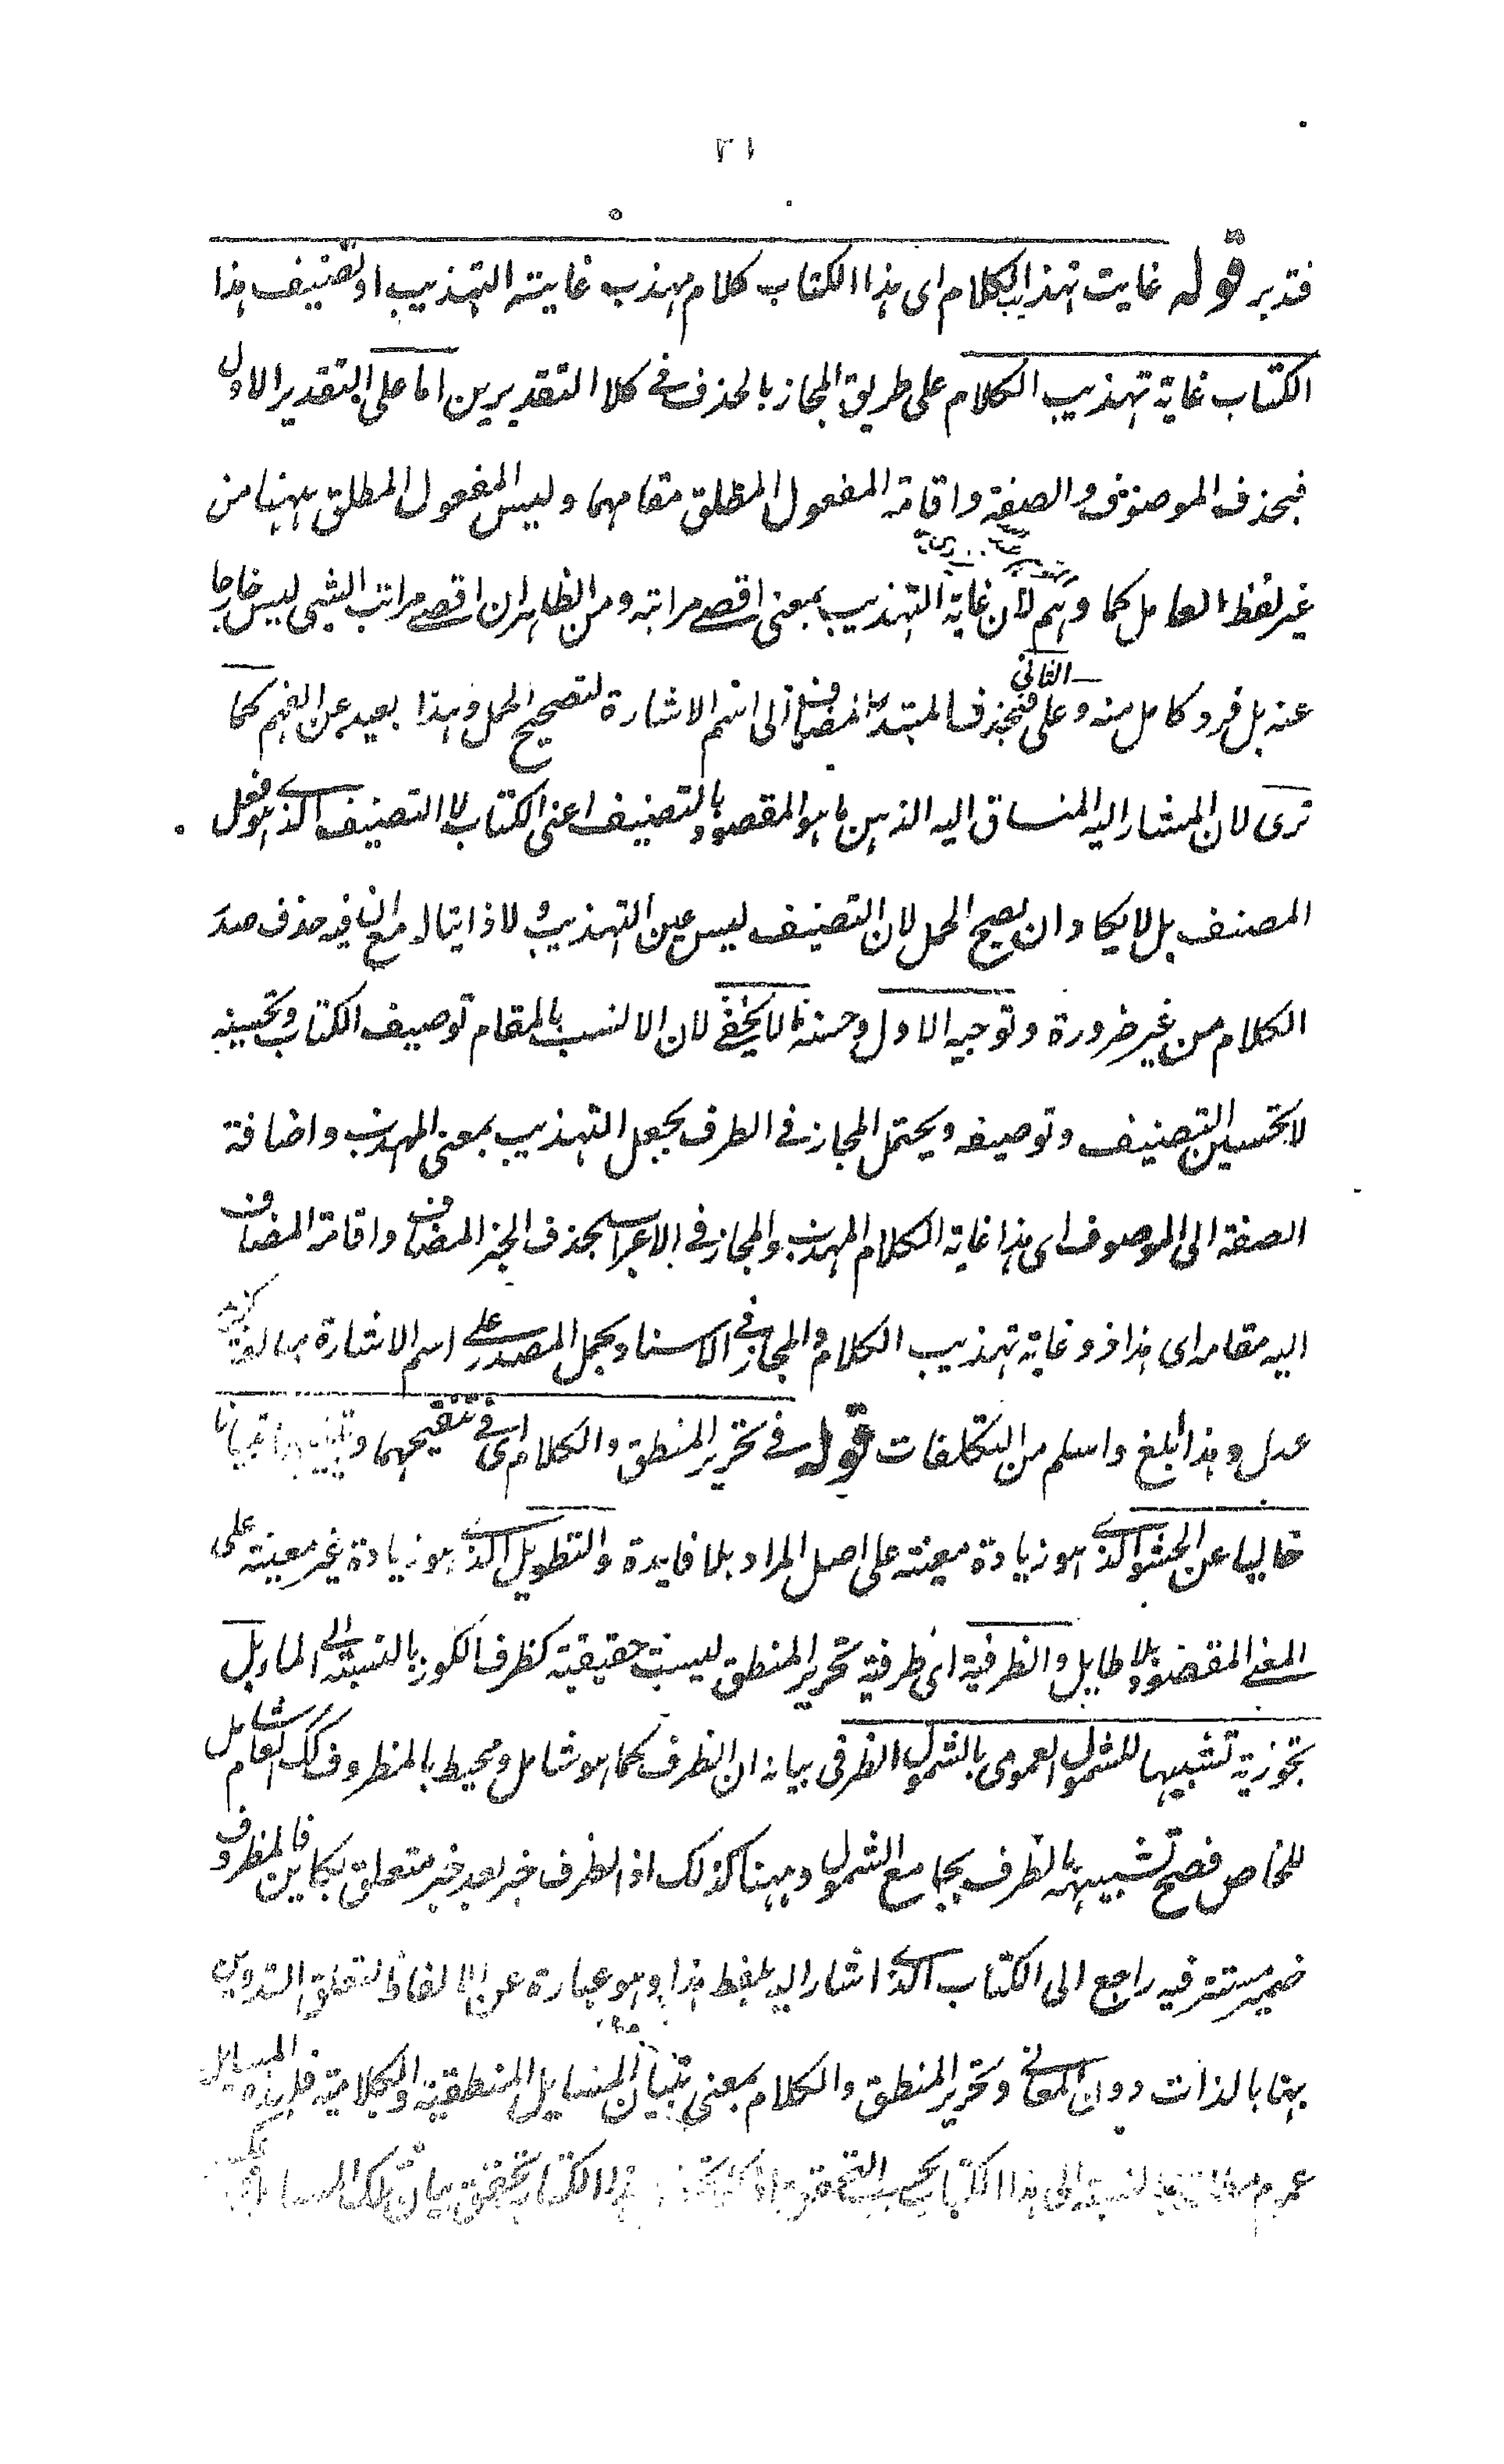 ٢١
فتدبر قوله غايت تهذيب الكلام اى هذا الكتاب كلام مهذب غايته التهذيب او تصنيف هذا
الكتاب غاية تهذيب الكلام على طريق المجاز بالحذف فى كلا التقديرين اما على التقدير الاول
فبحذف الموصوف والصفة واقامة المفعول المطلق مقامهما وليس المفعول المطلق ههنا من
غير لفظ العامل كما وهم لان غاية التهذيب بمعنى اقصے مراتبه ومن الظاهر ان اقصے مراتب الشى ليس خارجا
عنه بل فرد كامل منه وعلى الثانى فبحذف المبتدأ المضاف الى اسم الاشارة لتصحيح الحمل وهذا بعيد عن الفهم كما
ترى لان المشار اليه المنساق اليه الذهن ما هو المقصود بالتصنيف اعنى الكتاب لا التصنيف الذے هو فعل
المصنف بل لا يكاد ان يصح الحمل لان التصنيف ليس عين التهذيب ولا ذا يتال مع ان فيه حذف صدر
الكلام من غير ضرورة وتوجيه الاول وحسنه مما لا يخفے لان الانسب بالمقام توصيف الكتاب وتحسينه
لا تحسين التصنيف وتوصيفه ويحتمل المجاز فى الطرف بجعل التهذيب بمعنى المهذب واضافة
الصفة الى الموصوف اى هذا غاية الكلام المهذب والمجاز فى الاعراب بحذف الخبر المضاف واقامة المضاف
اليه مقامه اى هذا ذو غاية تهذيب الكلام والمجاز فى الاسناد بحمل المصدر علے اسم الاشارة مبالغة كزيد
عدل وهذا ابلغ واسلم من التكلفات قوله فى تحرير المنطق والكلام اى فى تنقيحهما وتبيينهما تبيانا
خاليا عن الحشو الذے هو زيادة معينة على اصل المراد بلا فايدة والتطويل الذے هو زيادة غير معينة على
المعنے المقصود بلا طايل والظرفية اى ظرفية تحرير المنطق ليست حقيقية كظرف الكوز بالنسبة الى الماء بل
تجوزية تشبيها للشمول العمومى بالشمول الظرفى بيانه ان الظرف كما هو شامل ومحيط بالمظروف كك العام شامل
للخاص فصح تشبيهه بالظرف بجامع الشمول وههنا كذلك اذ الظرف خبر بعد خبر متعلق بكاين فالمظروف
ضمير مستتر فيه راجع الى الكتاب الذے اشار اليه بلفظ هذا وهو عبارة عن الالفاظ لتعلق التدوين
بها بالذات دون المعانے وتحرير المنطق والكلام بمعنى تبيان المسايل المنطقية والكلامية فلهذه المسايل
عموم بالنسبة الى هذا الكتاب بحسب التحقق هذا الكتاب تحقق بيان تلك المسايل